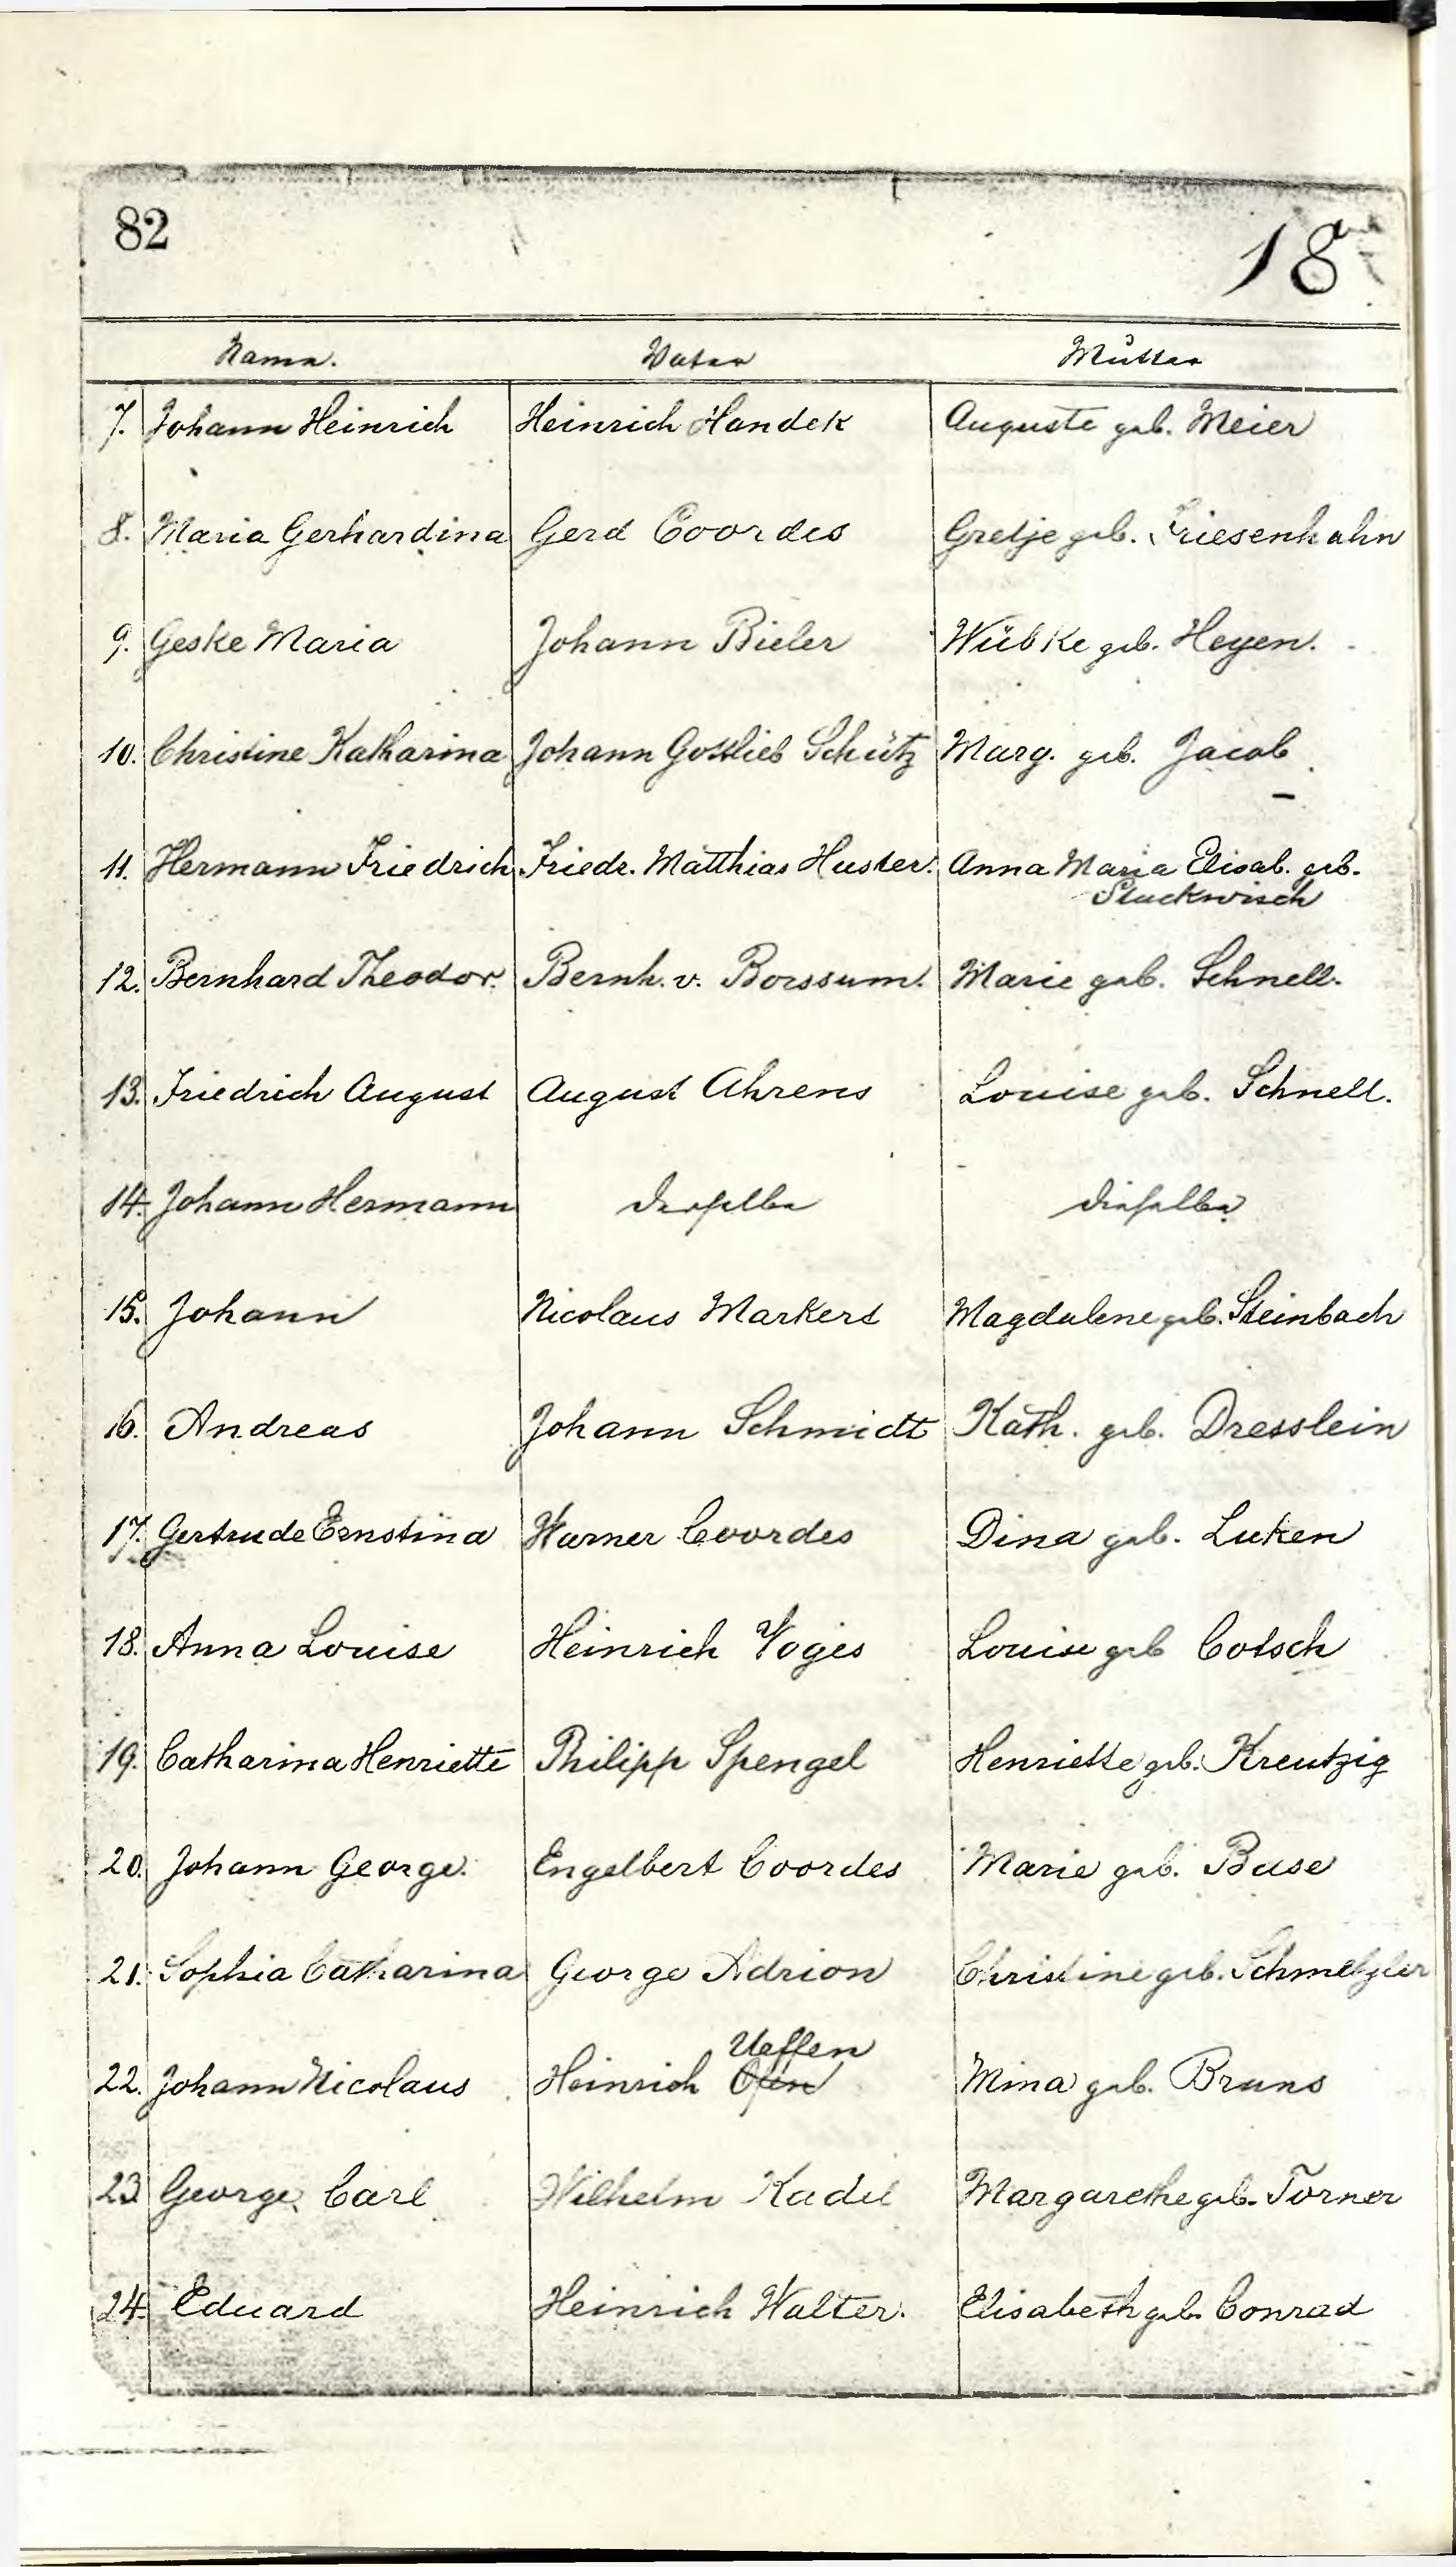 82
18
Name. Vater Mutter
7. Johann Heinrich Heinrich Handek Auguste geb. Meier
8. Maria Gerhardina Gerd Coordes Gretje geb. Friesenhahn
9. Geske Maria Johann Bieler Wübke geb. Heyen.
10. Christine Katharina Johann Gottlieb Schütz Marg. geb. Jacob
11. Hermann Friedrich Friedr. Matthias Huster. Anna Maria Elisab. geb.
Stuckwisch
12. Bernhard Theodor. Bernh. v. Borssum. Marie geb. Schnell.
13. Friedrich August August Ahrens Louise geb. Schnell.
14. Johann Hermann derselbe dieselbe
15. Johann Nicolaus Markert Magdalene geb. Steinbach
16. Andreas Johann Schmidt Kath. geb. Dresslein
17. Gertrude Ernstina Warner Coordes Dina geb. Luken
18. Anna Louise Heinrich Voges Louise geb Cotsch
19. Catharina Henriette Philipp Spengel Henriette geb. Kreutzig
20. Johann George. Engelbert Coordes Marie geb. Buse
21. Sophia Catharina George Adrion Christine geb. Schmelzler
Ueffen
22. Johann Nicolaus Heinrich Mina geb. Bruns
23 George Carl Wilhelm Kadel Margarethe geb. Torner
24. Eduard Heinrich Walter. Elisabeth geb. Conrad